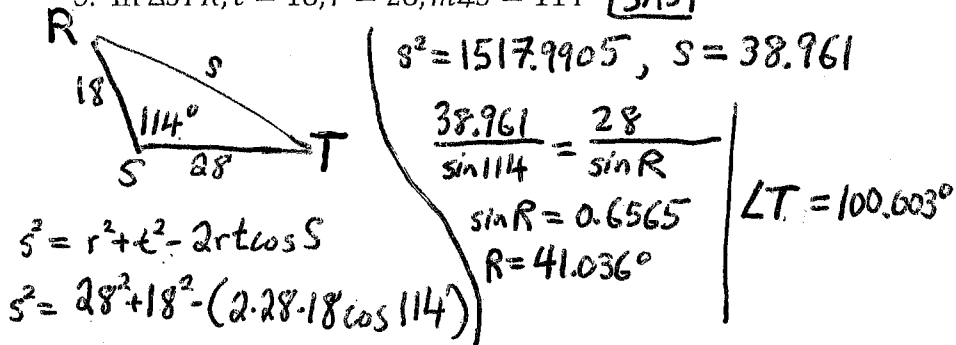 R
s
18
114°
S
28
T
s² = r² + t² - 2rt cos S
s² = 28² + 18² - (2·28·18 cos 114)
s² = 1517.9905, s = 38.961
38.961 / sin 114 = 28 / sin R
sin R = 0.6565
R = 41.036°
∠T = 100.003°